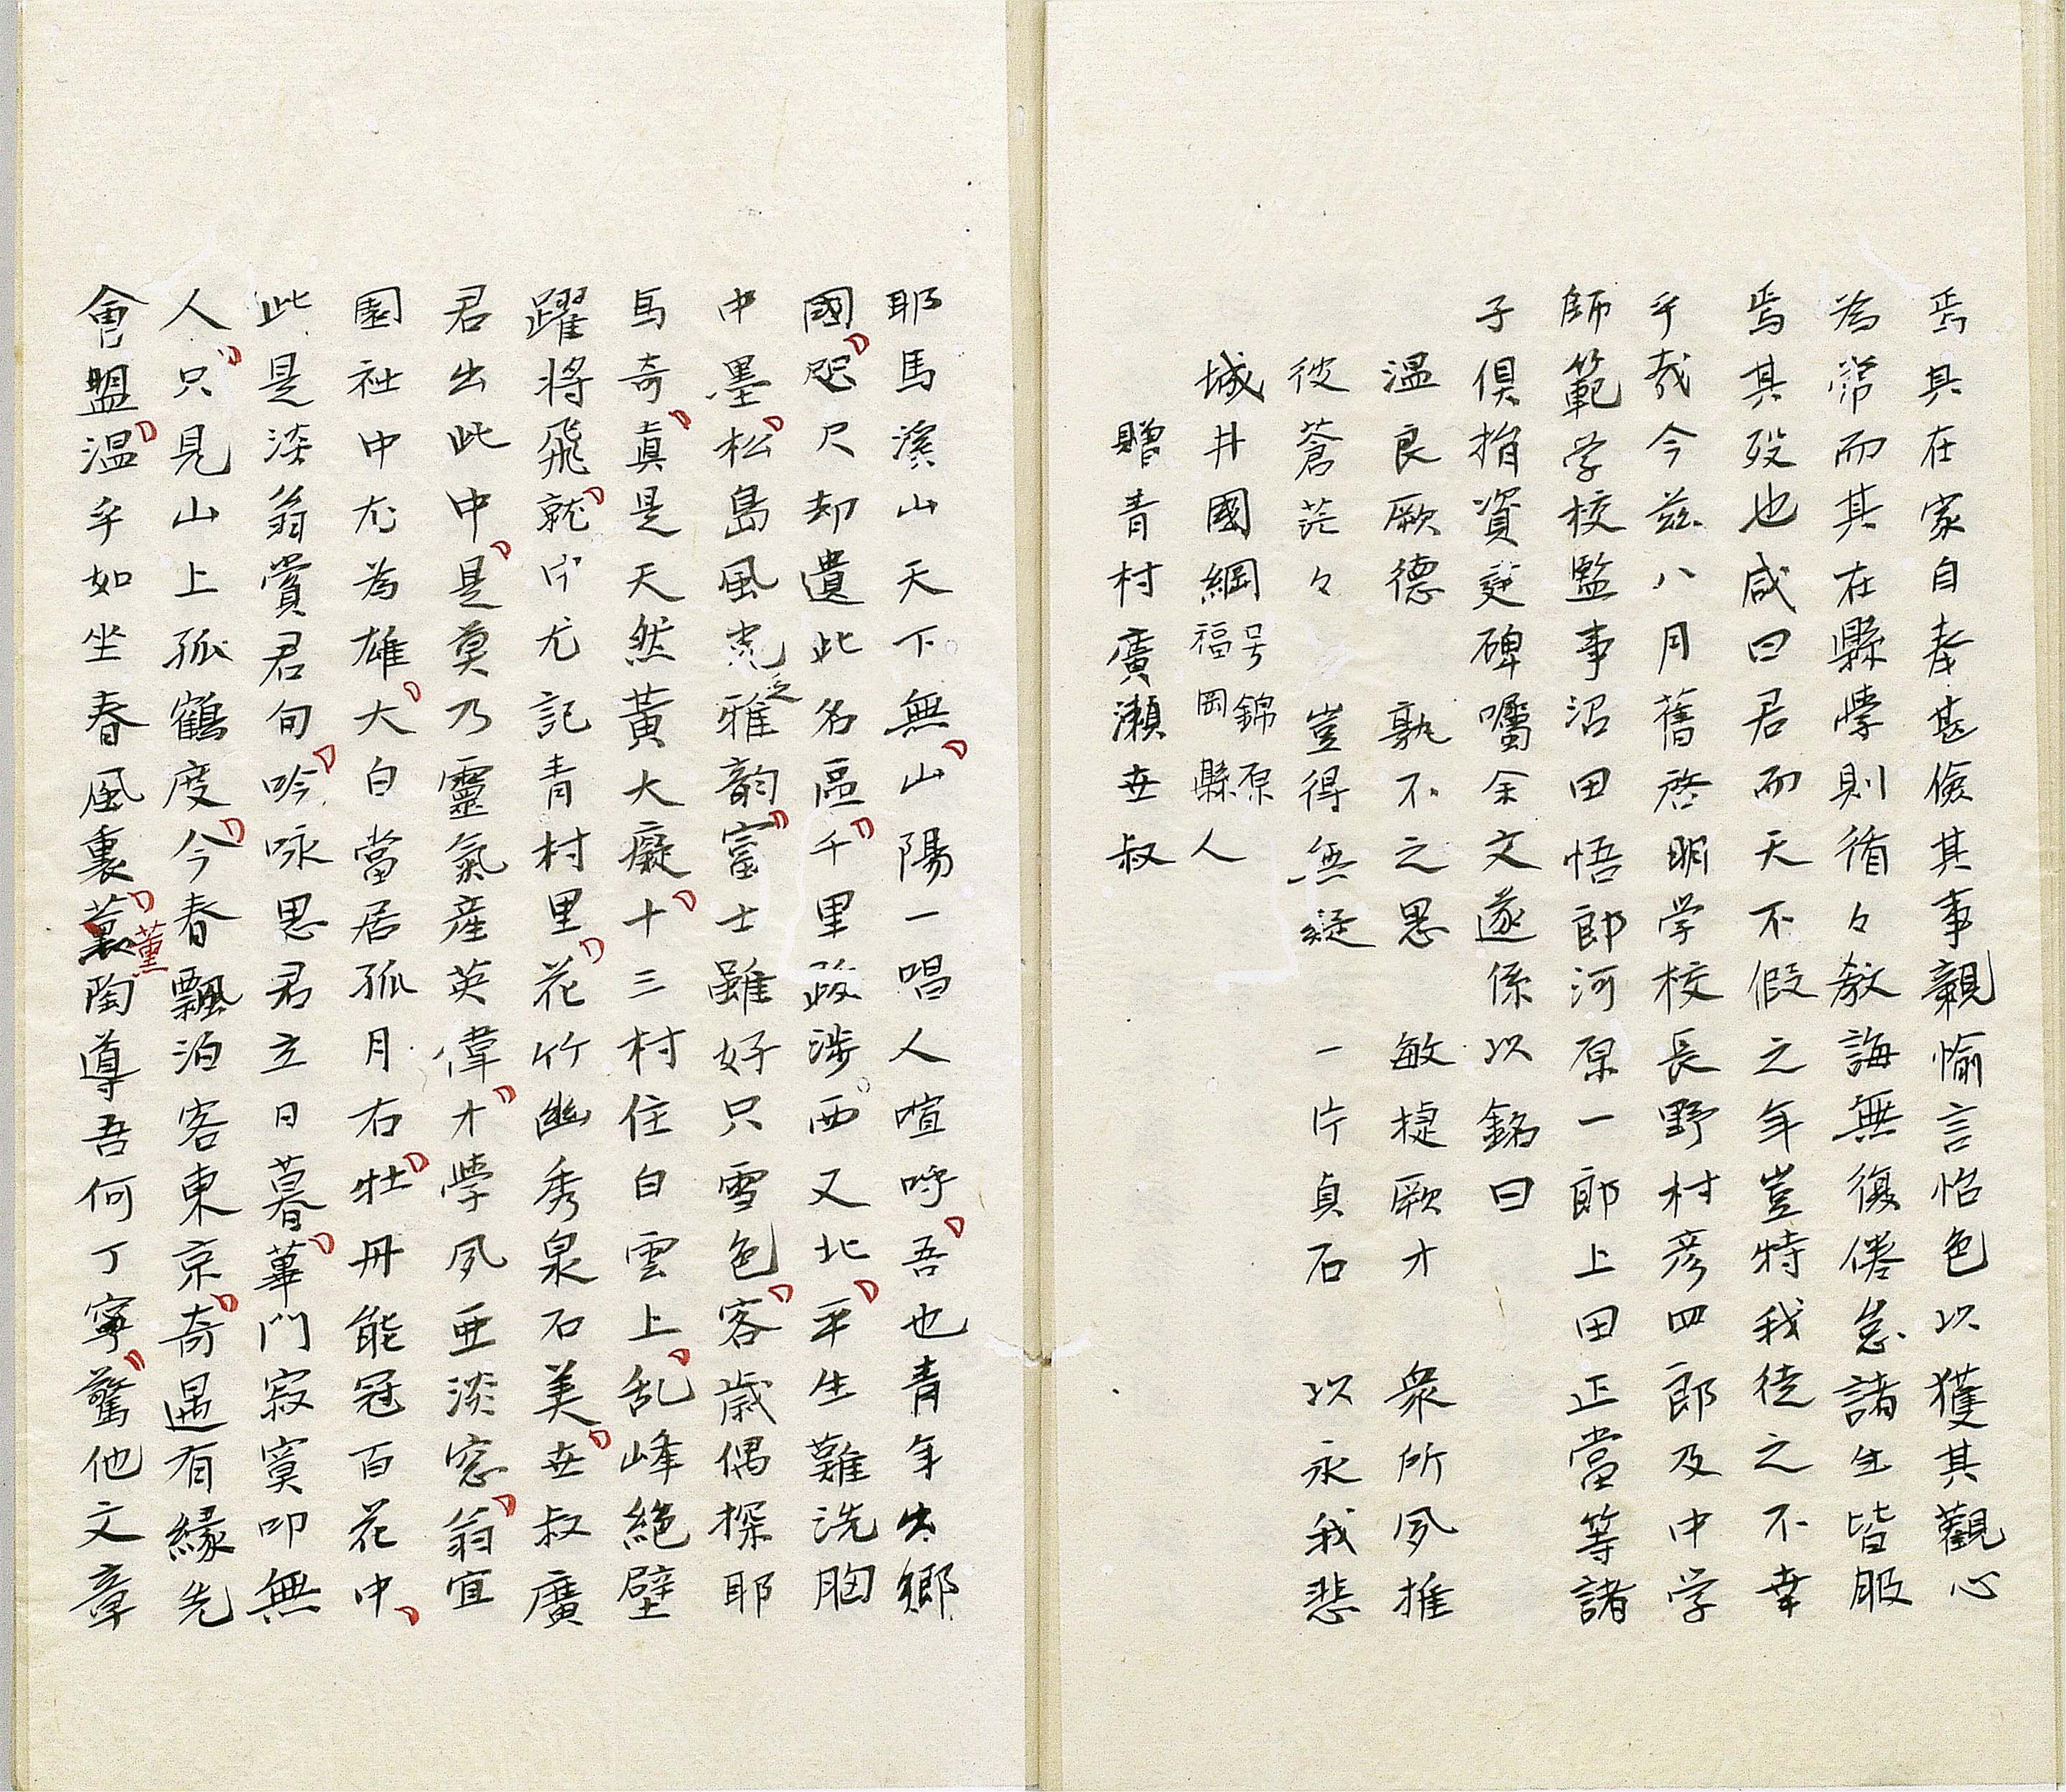 焉其在家自奉甚儉其事親愉言怡色以獲其觀心
為常而其在縣學則循々教誨無復倦怠諸生皆服
焉其歿也咸曰君而天不假之年豈特我徒之不幸
乎哉今茲八月舊啓明学校長野村彦四郎及中学
師範学校監事沼田悟郎河原一郎上田正當等諸
子俱捐資建碑囑余文遂係以銘曰
温良厥德　孰不之思　敏捷厥才　衆所夙推
彼蒼茫々　豈得無疑　一片貞石　以永我悲
城井國綱 号錦原 福岡縣人
贈青村廣瀬世叔
耶馬溪山天下無山陽一唱人喧呼吾也青年出鄉
國咫尺却遺此名區千里跋涉西又北平生難洗胸
中墨松島風光乏雅韵富士雖好只雪色客歲偶探耶
馬奇真是天然黃大癡十三村住白雲上乱峰絶壁
躍将飛就中尤記青村里花竹幽秀泉石美世叔廣
君出此中是莫乃靈氣産英偉才學夙亜淡窓翁宜
園社中尤為雄大白當居孤月右牡丹能冠百花中
此是淡翁賞君句吟咏思君立日暮蓽門寂寞叩無
人只見山上孤鶴度今春飄泊客東京奇遇有緣先
會盟温乎如坐春風裏薫陶導吾何丁寧驚他文章